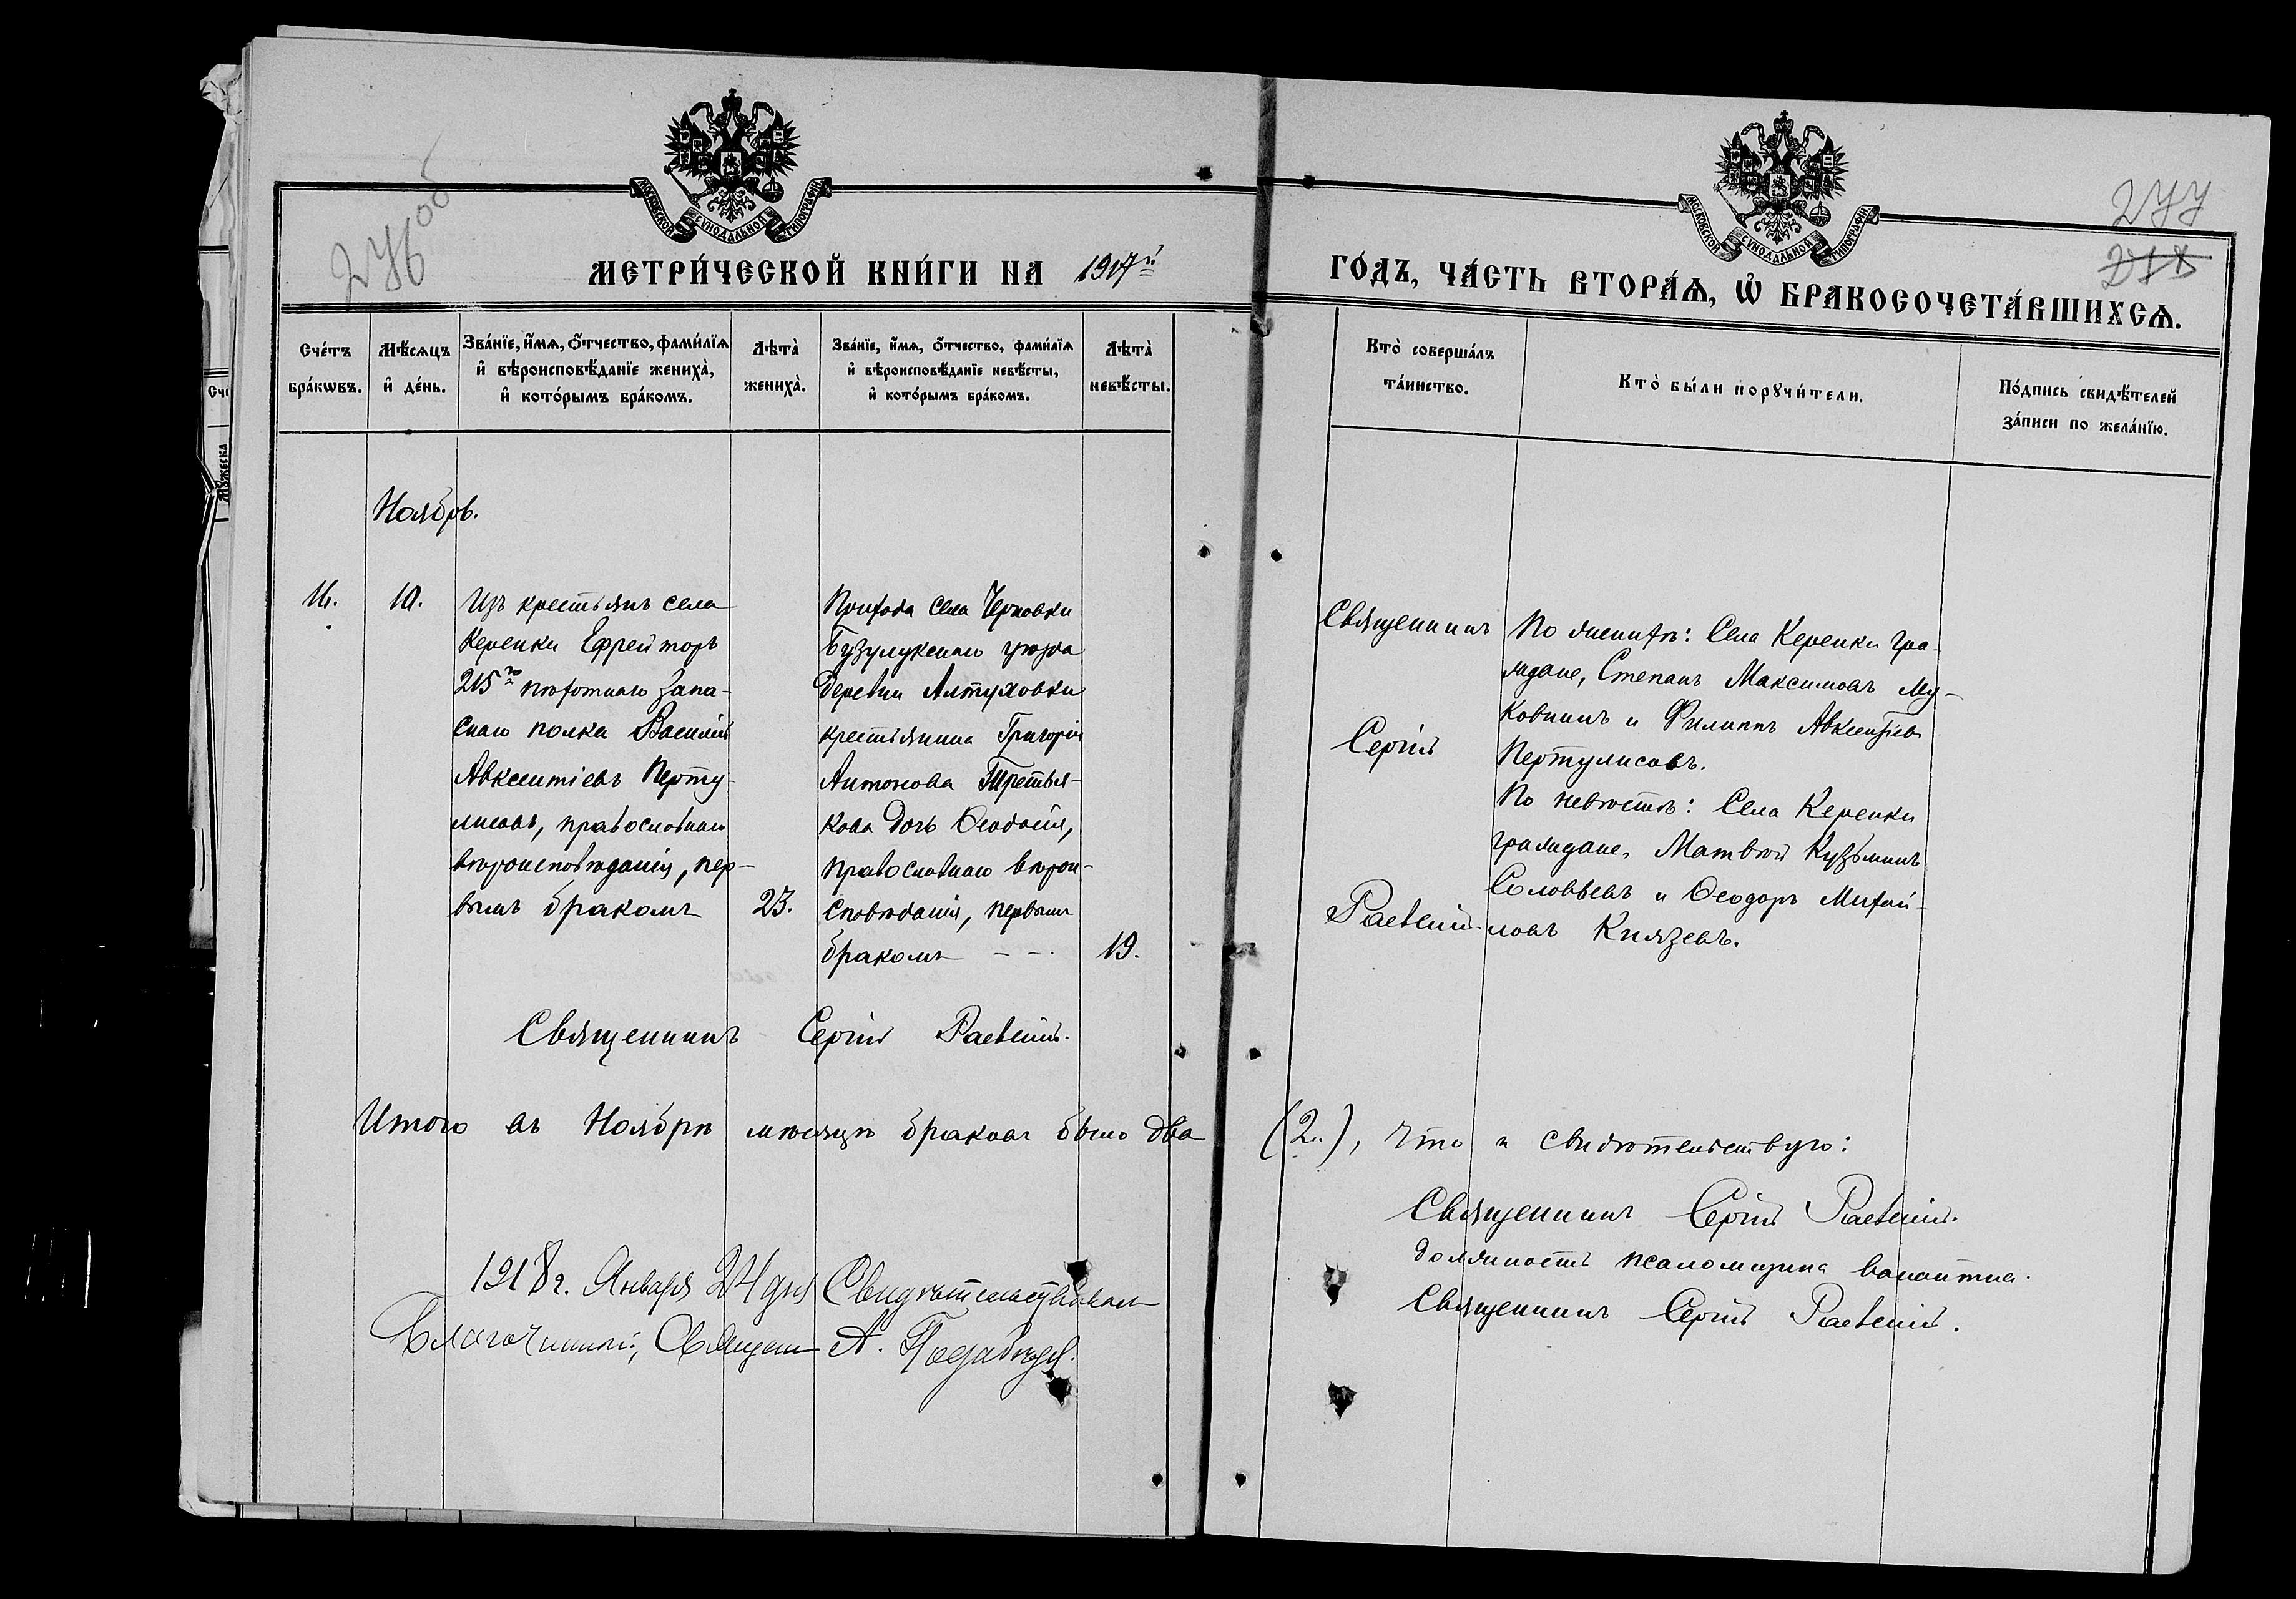 276 об
277
МОСКОВСКОЙ СѴНОДАЛЬНОЙ ТИПОГРАФІИ
МОСКОВСКОЙ СѴНОДАЛЬНОЙ ТИПОГРАФІИ
МЕТРИ́ЧЕСКОЙ КНИ́ГИ НА 1917й
ГО́ДЪ, ЧА́СТЬ ВТОРА́Ѧ, Ѽ БРАКОСОЧЕТА́ВШИХСѦ.
Сче́тъ
бра́кѡвъ.
Мѣ́сѧцъ
и҆ де́нь.
Зва́нїе, и҆́мѧ, ѻ҆́тчество, фами́лїѧ
и҆ вѣроисповѣ́данїе жениха̀,
и҆ кото́рымъ бра́комъ.
Лѣта̀
жениха̀.
Зва́нїе, и҆́мѧ, ѻ҆́тчество, фами́лїѧ
и҆ вѣроисповѣ́данїе невѣ́сты,
и҆ кото́рымъ бра́комъ.
Лѣта̀
невѣ́сты.
Кто̀ соверша́лъ
та́инство.
Кто̀ бы́ли порꙋчи́тели.
По́дпись свидѣ́телей
за́писи по жела́нїю.
Ноябрь.
10.
Изъ крестьянъ села
Керенки Ефрейторъ
215го пѣхотнаго запа-
снаго полка Василій
Авксентіевъ Перту-
лисовъ, православнаго
вѣроисповѣданія, пер-
вымъ бракомъ
23.
Прихода села Черновки
Бузулукскаго уѣзда
деревни Алтуховки
крестьянина Григорія
Антонова Третья-
кова дочь Ѳеодосія,
православнаго вѣрои-
сповѣданія, первымъ
бракомъ
19.
Священникъ
Сергій
Раевскій.
По женихѣ: Села Керенки гра-
ждане, Степанъ Максимовъ Му-
ковнинъ и Филиппъ Авксентіевъ
Пертулисовъ.
По невѣстѣ: Села Керенки
граждане, Матвѣй Кузьминъ
Соловьевъ и Ѳеодоръ Михай-
ловъ Князевъ.
Священникъ Сергій Раевскій.
Итого въ Ноябрѣ мѣсяцѣ браковъ было два (2.), что и свидѣтельствую:
Священникъ Сергій Раевскій.
Должность псаломщика вакантна.
Священникъ Сергій Раевскій.
1918 г. Января 24 дня Свидѣтельствовалъ
Благочинный, Священ. А.